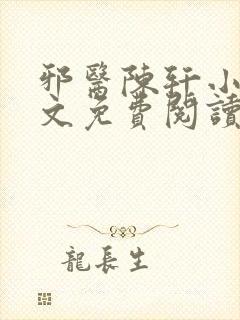 邪醫陳軒小
文免費閱讀
龍長生